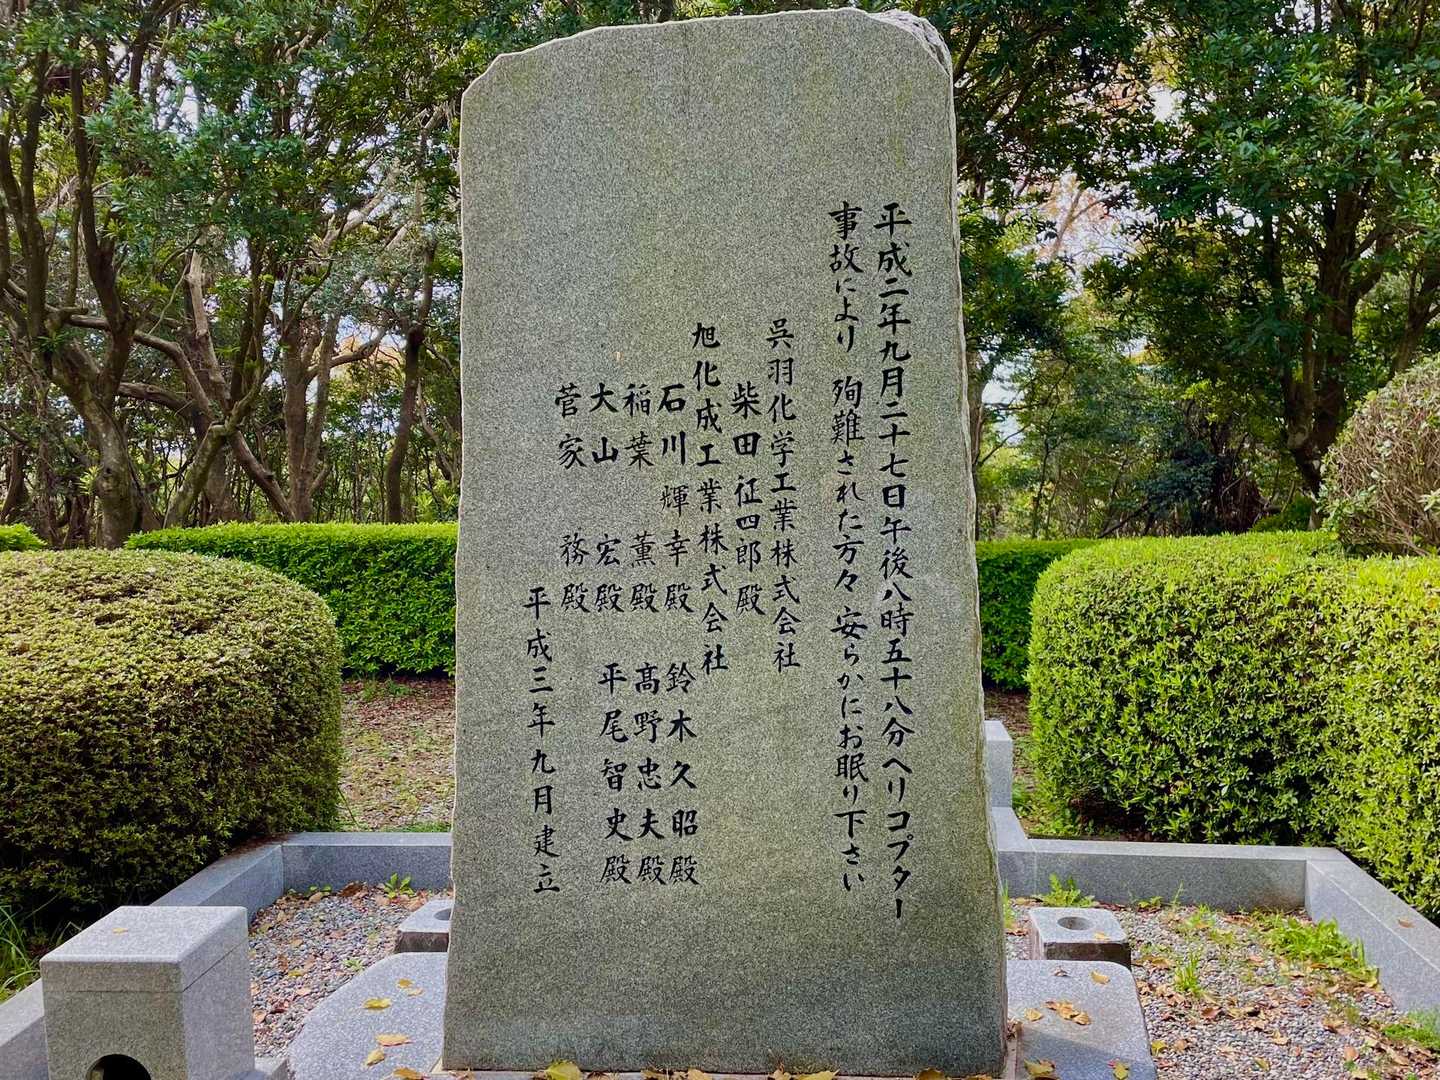 平成二年九月二十七日午後八時五十八分ヘリコプター
事故により 殉難された方々 安らかにお眠り下さい
呉羽化学工業株式会社
柴田征四郎殿
旭化成工業株式会社
石川輝幸殿 鈴木久昭殿
稲葉薫殿 髙野忠夫殿
大山宏殿 平尾智史殿
菅家務殿
平成三年九月建立